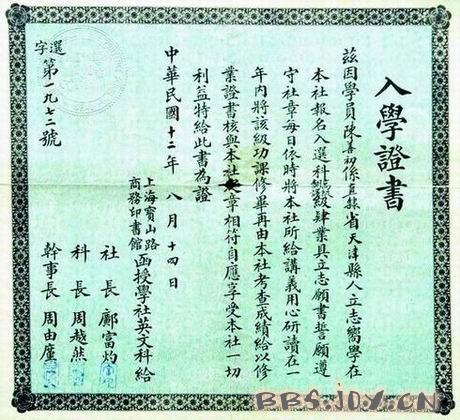 入學證書
茲因學員陳善初係直隸省天津縣人立志嚮學在
本社報名入選科級肄業具立志願書誓願遵
守社章每日依時將本社所給講義用心研讀在一
年內將該級功課修畢再由本社考查成績給以修
業證書核與本社章相符自應享受本社一切
利益特給此書為證
中華民國十二年八月十四日
上海寶山路
商務印書館
函授學社英文科給
社長鄺富灼
科長周越然
幹事長周由廑
選字第一九七二號
BBS.IDY.CN